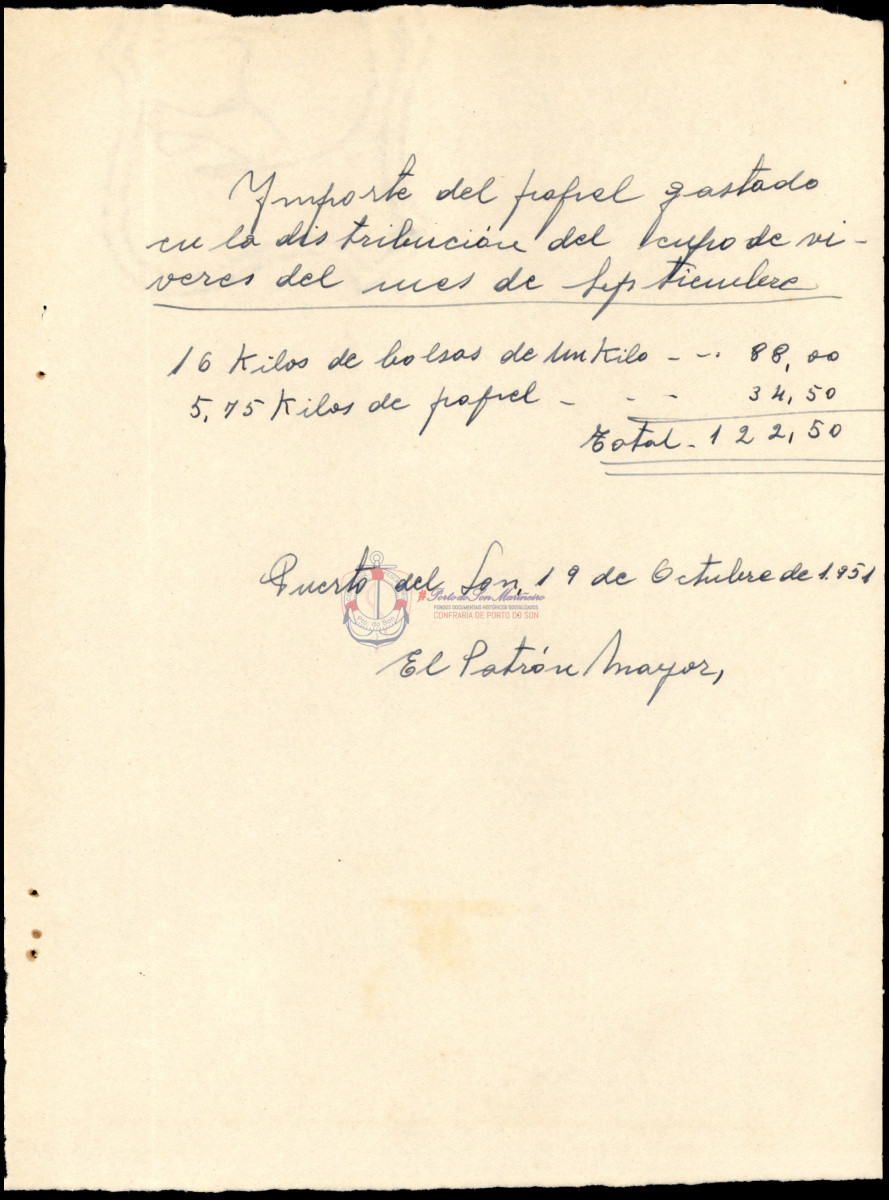 Ymporte del papel gastado
en la distribución del cupo de vi-
veres del mes de Septiembre
16 Kilos de bolsas de un Kilo - - . 88,00
5,75 Kilos de papel - - - 34,50
Total - 122,50
Puerto del Son, 19 de Octubre de 1.951
Pto. do Son
#Porto do Son Mariñeiro
FONDOS DOCUMENTAIS HISTÓRICOS DIXITALIZADOS
CONFRARÍA DE PORTO DO SON
El Patrón Mayor,